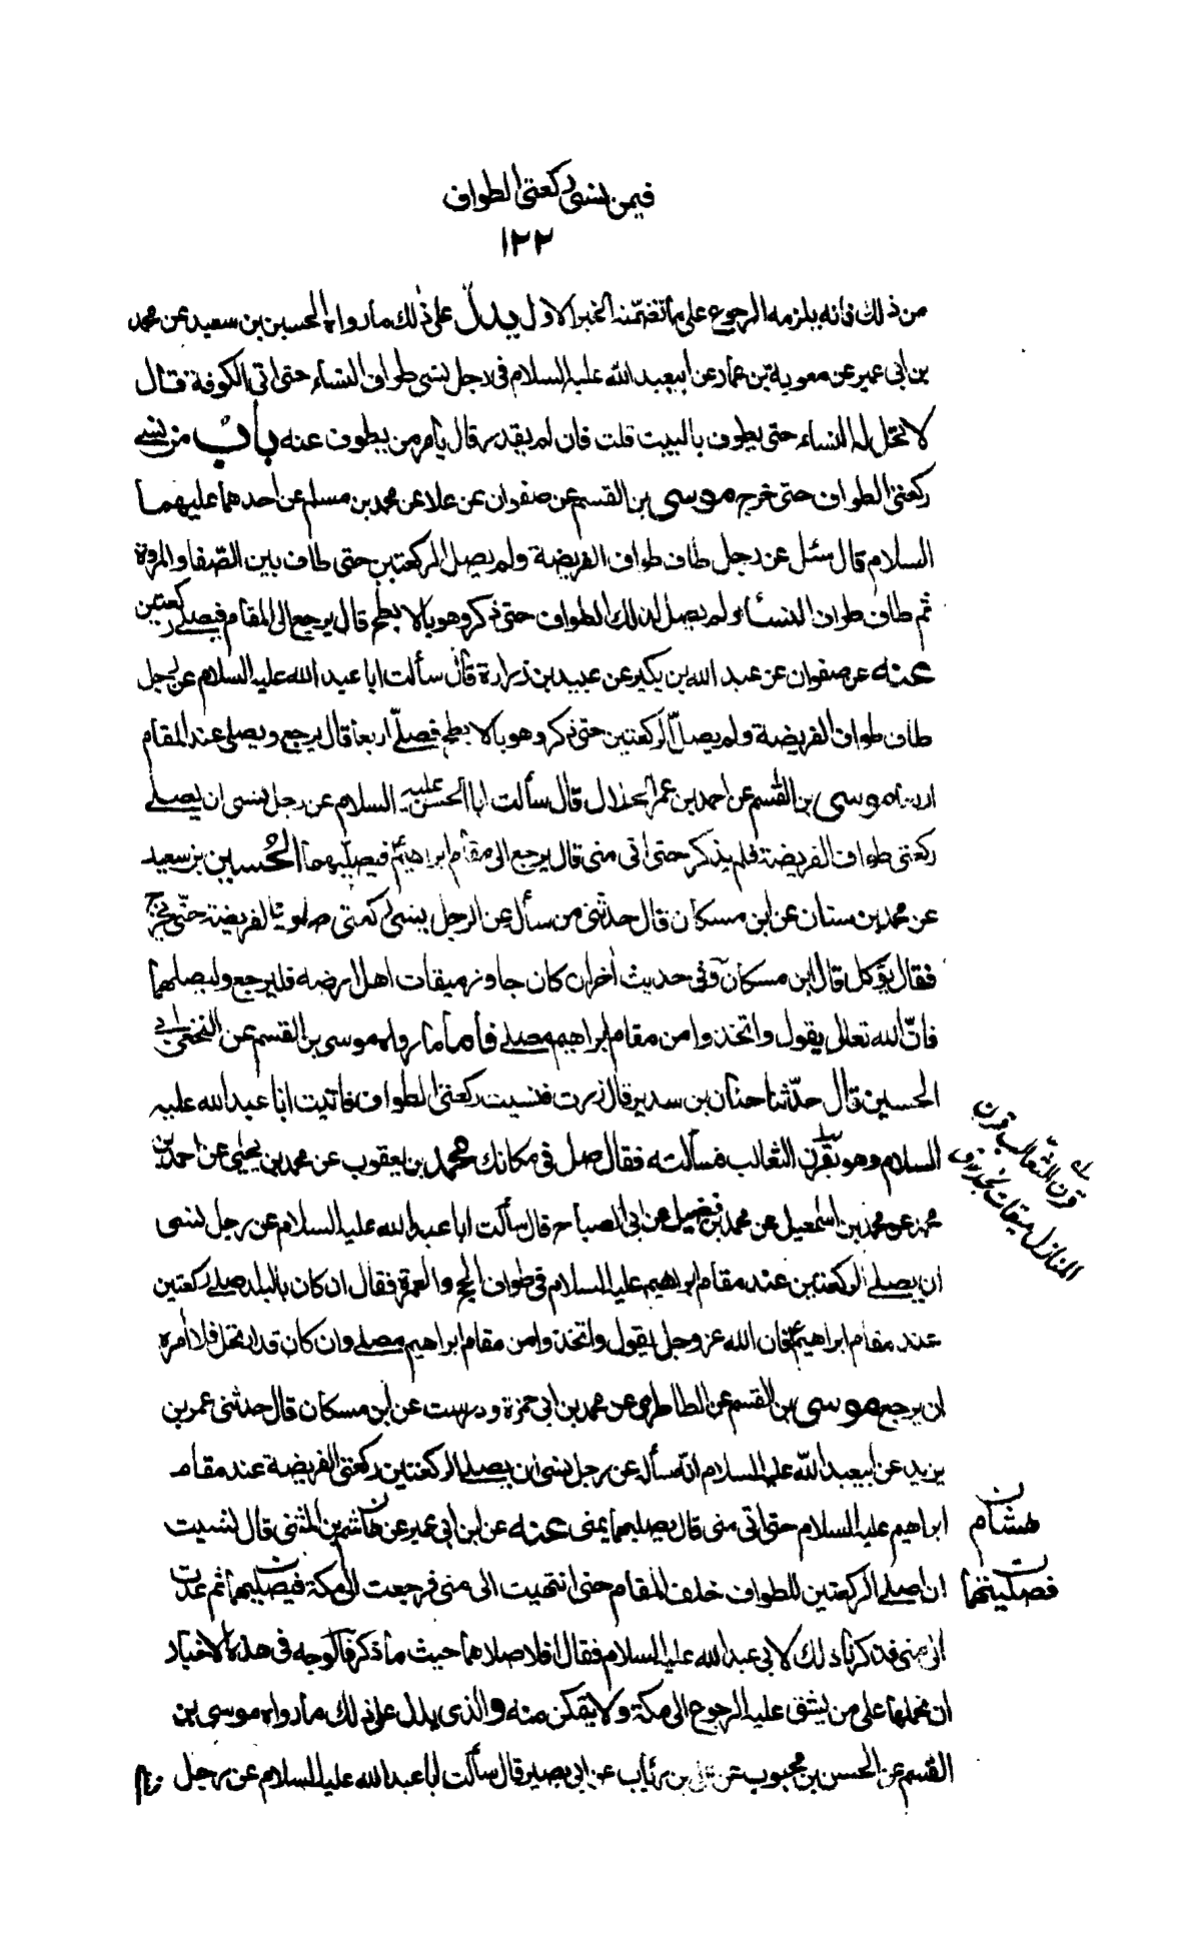 فيمن نسى ركعتى الطواف
١٢٢
من ذلك فانه يلزمه الرجوع على ما تضمنه الخبر الاول يدل على ذلك ما رواه الحسين بن سعيد عن محمد
بن ابى عمير عن معوية بن عمار عن ابيعبد الله عليه السلام فى رجل نسى طواف النساء حتى اتى الكوفة قال
لا تحل له النساء حتى يطوف بالبيت قلت فان لم يقدر قال يأمر من يطوف عنه باب من نسى
ركعتى الطواف حتى خرج موسى بن القسم عن صفوان عن علا عن محمد بن مسلم عن احدهما عليهما
السلام قال سئل عن رجل طاف طواف الفريضة ولم يصل الركعتين حتى طاف بين الصفا والمروة
ثم طاف طواف النساء ولم يصل لذلك الطواف حتى ذكر وهو بالابطح قال يرجع الى المقام فيصلى ركعتين
عنه عن صفوان عن عبد الله بن بكير عن عبيد بن زرارة قال سألت ابا عبد الله عليه السلام عن رجل
طاف طواف الفريضة ولم يصل الركعتين حتى ذكر وهو بالابطح فصلى اربعا قال يرجع ويصلى عند المقام
اربعا موسى بن القسم عن احمد بن عمر الحلال قال سألت ابا الحسن عليه السلام عن رجل نسى ان يصلى
ركعتى طواف الفريضة فلم يذكر حتى اتى منى قال يرجع الى مقام ابراهيم فيصليهما الحسين بن سعيد
عن محمد بن سنان عن ابن مسكان قال حدثنى من سأل عن الرجل ينسى ركعتى طواف الفريضة حتى يخرج
فقال يوكل قال ابن مسكان وفى حديث اخران كان جاوز ميقات اهل ارضه فليرجع وليصلهما
فان الله تعالى يقول واتخذوا من مقام ابراهيم مصلى فأما ما رواه موسى بن القسم عن النخعى ابى
الحسين قال حدثنا حنان بن سدير قال زرت فنسيت ركعتى الطواف فاتيت ابا عبد الله عليه
السلام وهو بقرن الثعالب فسألته فقال صل فى مكانك محمد بن يعقوب عن محمد بن يحيى عن احمد بن
محمد عن محمد بن اسمعيل عن محمد بن فضيل عن ابى الصباح قال سألت ابا عبد الله عليه السلام عن رجل نسى
ان يصلى الركعتين عند مقام ابراهيم عليه السلام فى طواف الحج والعمرة فقال ان كان بالبلد صلى ركعتين
عند مقام ابراهيم فان الله عز وجل يقول واتخذوا من مقام ابراهيم مصلى وان كان قد ارتحل فلا امره
ان يرجع موسى بن القسم عن الطاطرى عن محمد بن ابى حمزة ودرست عن ابن مسكان قال حدثنى عمر بن
يزيد عن ابيعبد الله عليه السلام انه سأله عن رجل نسى ان يصلى الركعتين ركعتى الفريضة عند مقام
ابراهيم عليه السلام حتى اتى منى قال يصليهما بمنى عنه عن ابن ابى عمير عن هاشم بن المثنى قال نسيت
ان اصلى الركعتين للطواف خلف المقام حتى انتهيت الى منى فرجعت الى مكة فيصليهما ثم عدت
الى منى فذكرنا ذلك لابى عبد الله عليه السلام فقال افلا صلاهما حيث ما ذكر فالوجه فى هذه الاخبار
ان نحملها على من يشق عليه الرجوع الى مكة ولا يتمكن منه والذى يدل على ذلك ما رواه موسى بن
القسم عن الحسن بن محبوب عن على بن رئاب عن ابى بصير قال سألت ابا عبد الله عليه السلام عن رجل
قرن الثعالب قرن
المنازل ميقات نجد
هشام ن
فصليتهما ن